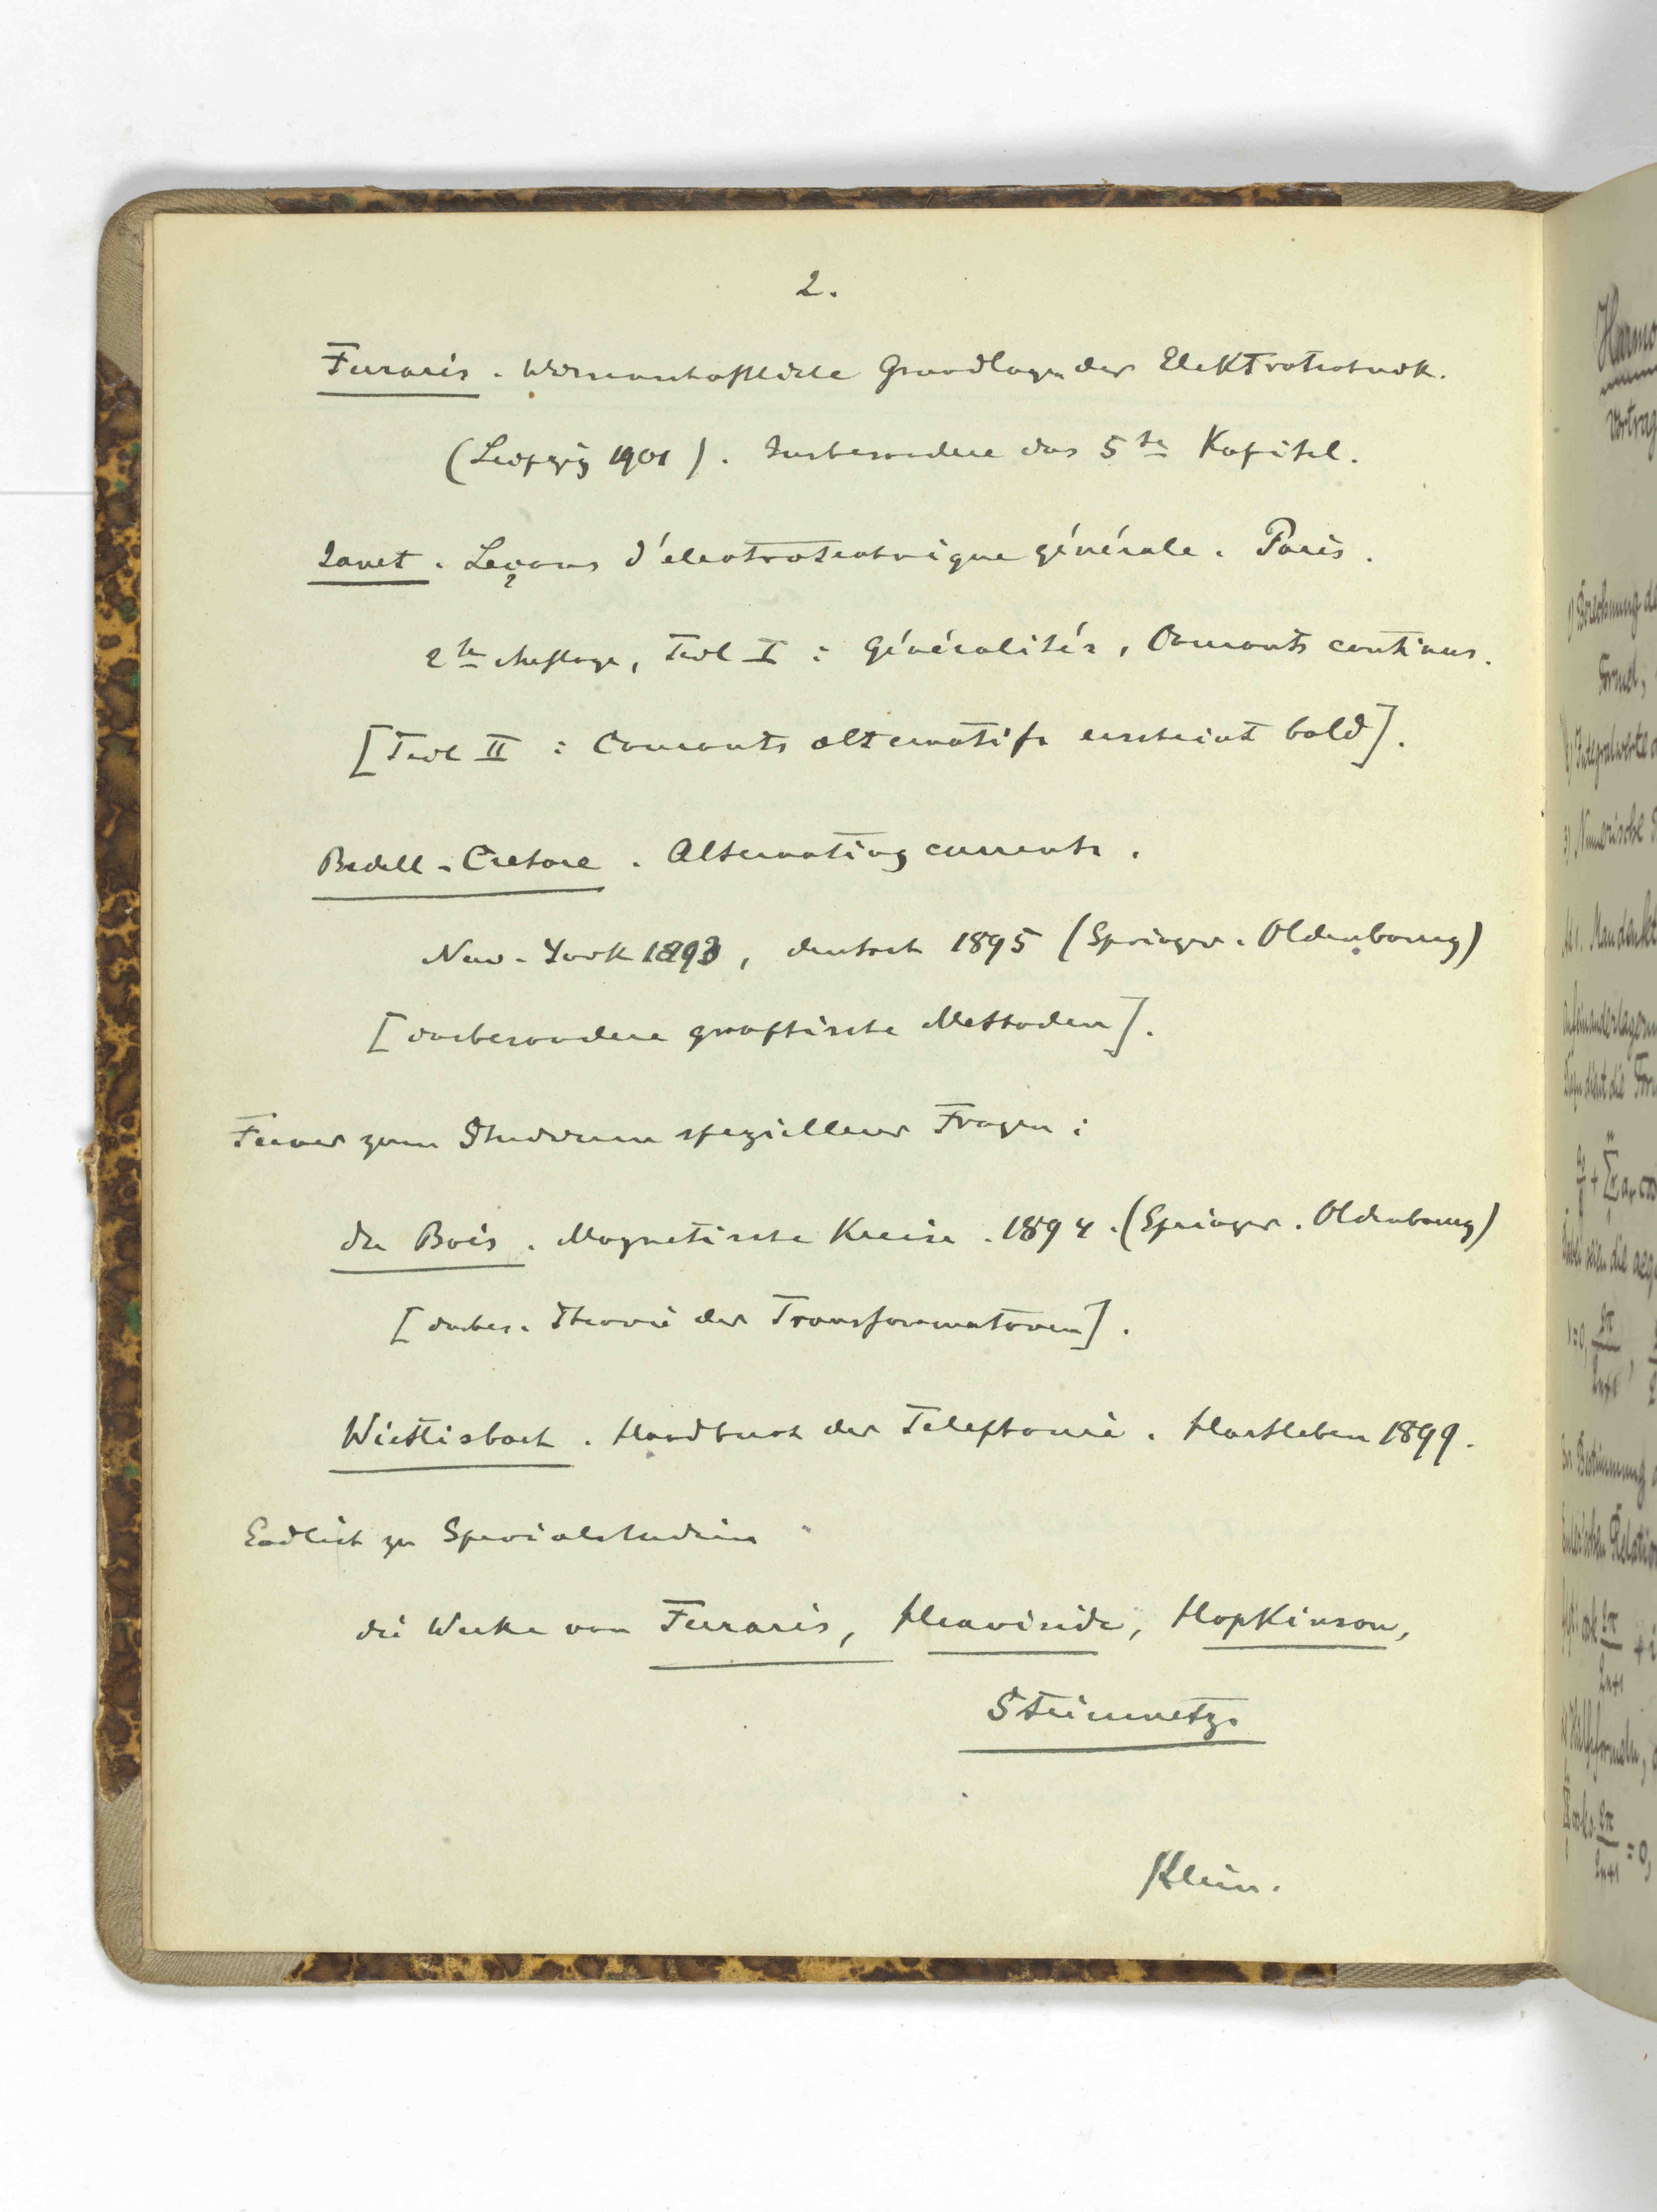 2.
Ferraris. Wissenschaftliche Grundlagen der Elektrotechnik.
(Leipzig 1901). Insbesondere das 5te Kapitel.
Janet. Leçons d'électrotechnique générale. Paris.
2te Auflage, Teil I: Généralités, Courants continus.
[Teil II: Courants alternatifs erscheint bald].
Bedell-Crehore. Alternating currents.
New-York 1893, deutsch 1895 (Springer. Oldenbourg)
[insbesondere graphische Methoden].
Ferner zum Studium spezieller Fragen:
du Bois. Magnetische Kreise. 1894. (Springer. Oldenbourg)
[insbes. Theorie der Transformatoren].
Wietlisbach. Handbuch der Telephonie. Hartleben 1899.
Endlich zu Spezialstudien
die Werke von Ferraris, Heaviside, Hopkinson,
Steinmetz.
Klein.
Vortrag
1) Berechnung
Formel,
2) Integralwerte
3) Numerische